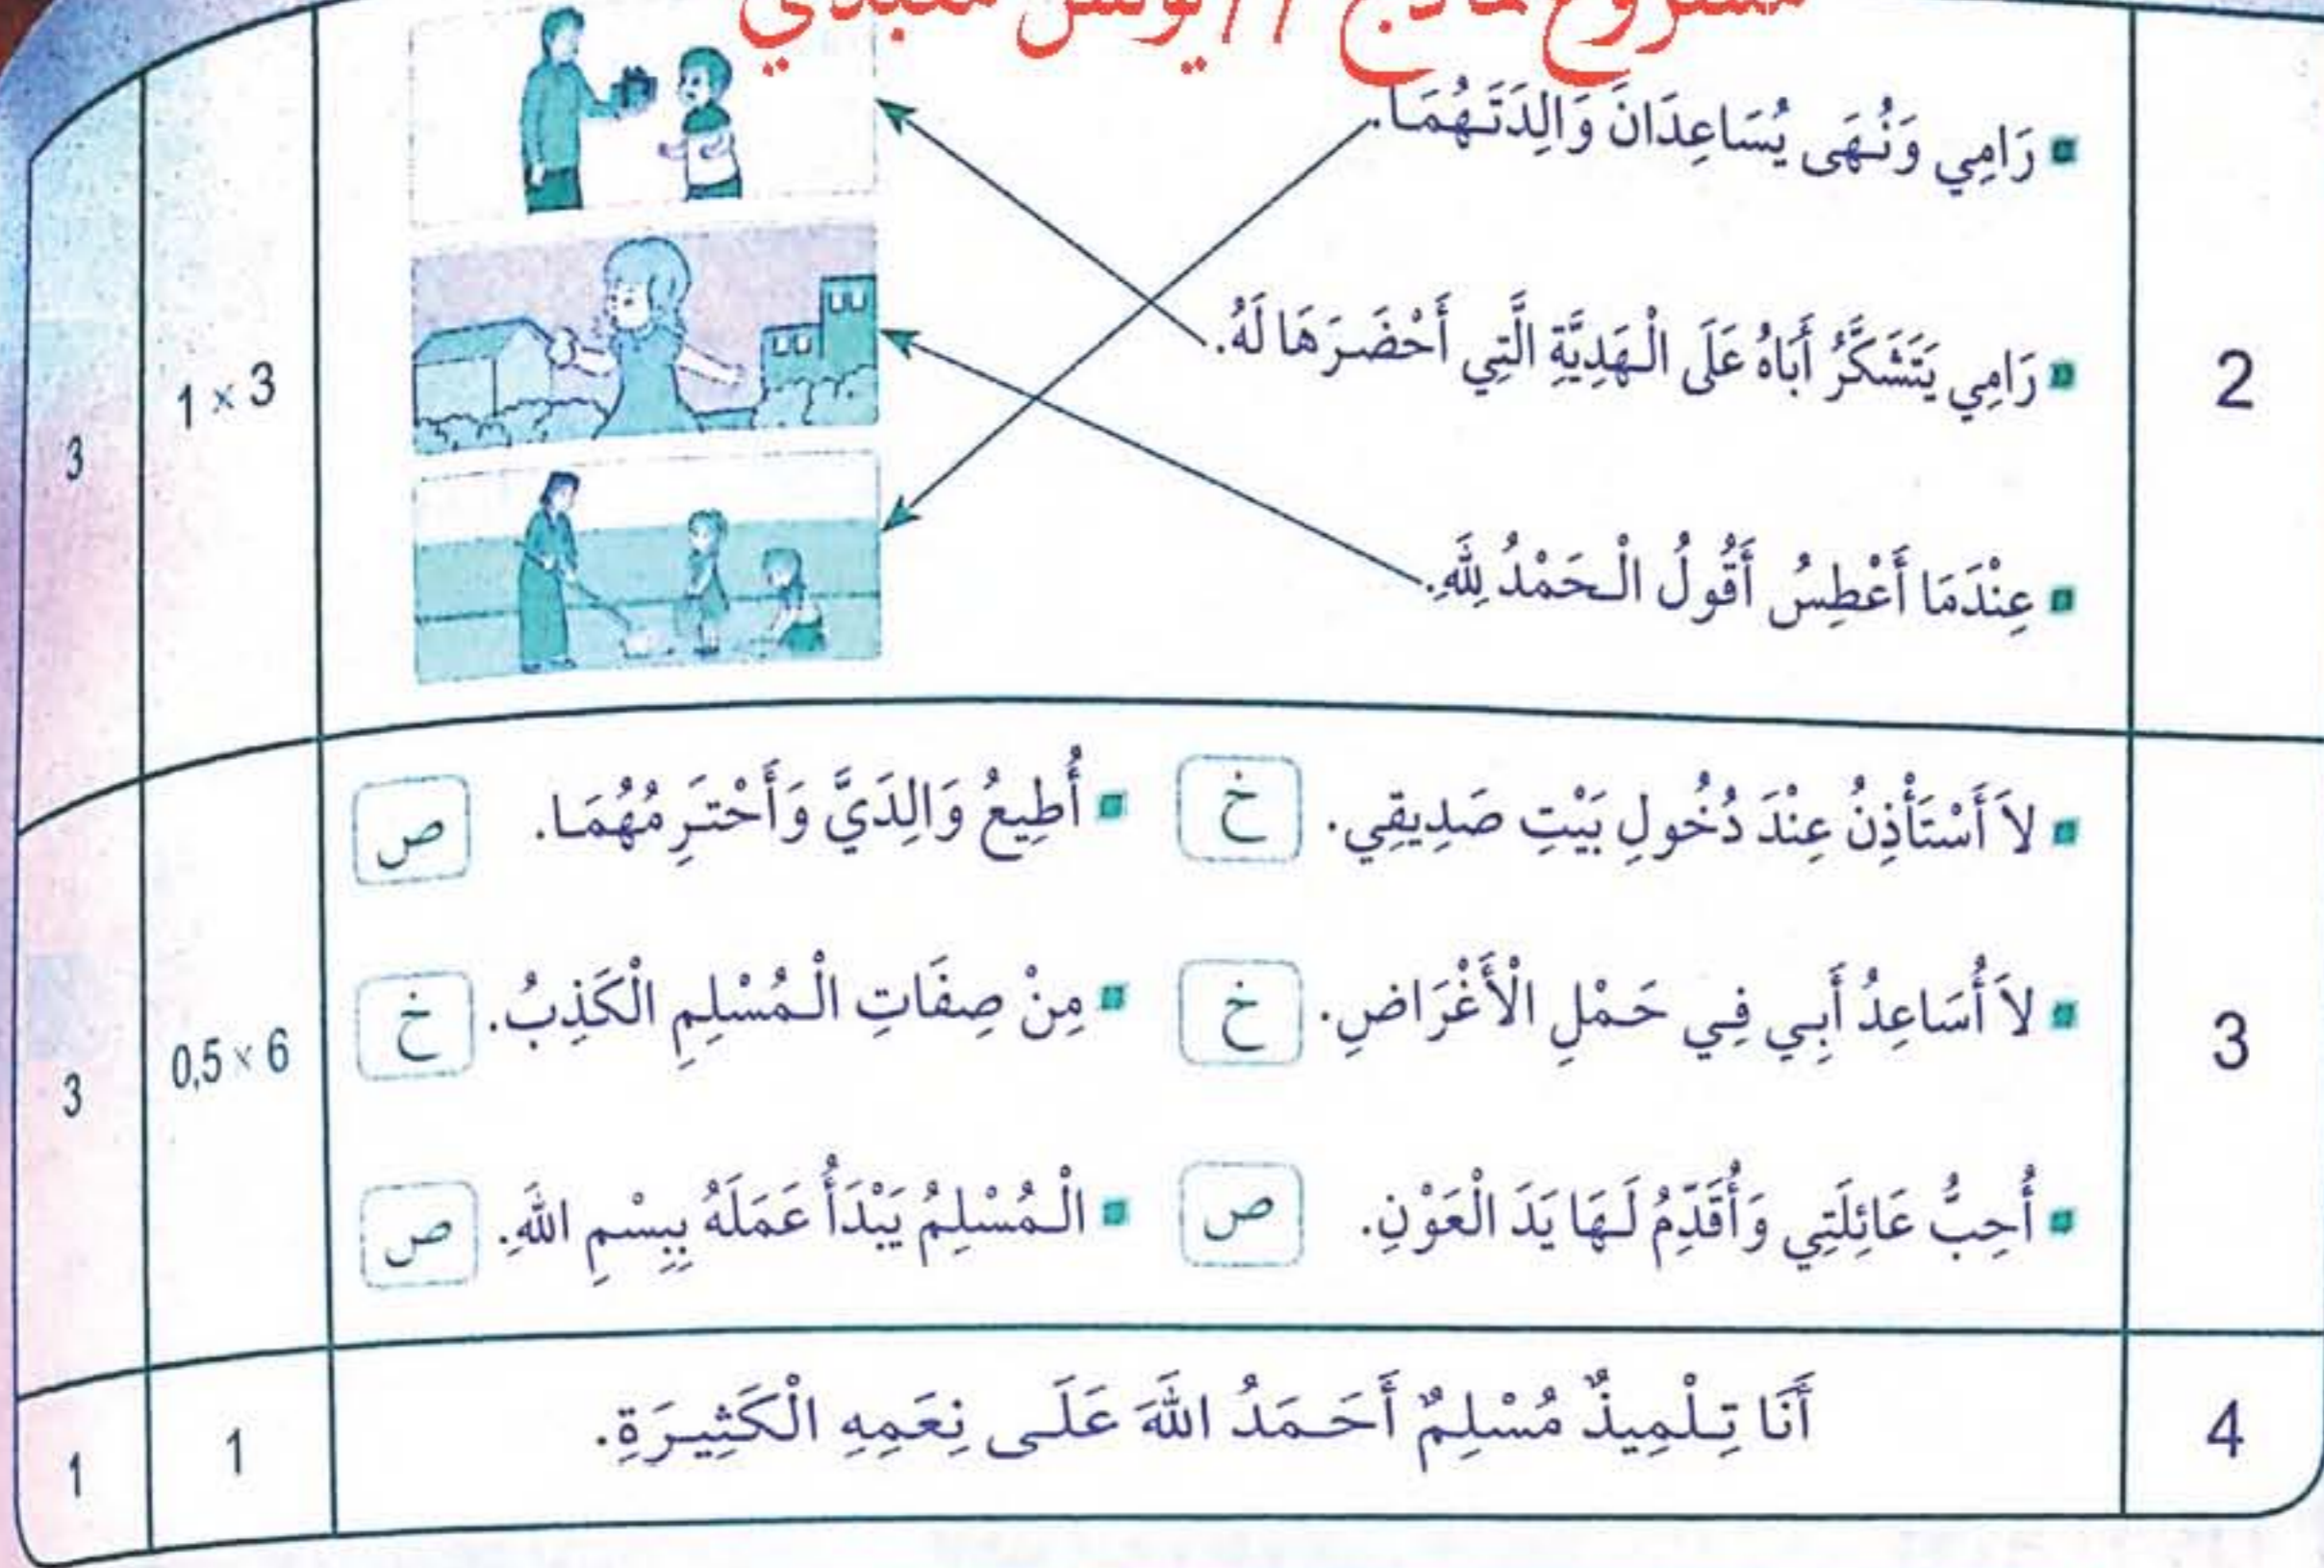 مشروع نماذج // يونس معبدي
رَامِي وَنُهَى يُسَاعِدَانَ وَالِدَتَهُمَا.
2
رَامِي يَتَشَكَّرُ أَبَاهُ عَلَى الْهَدِيَّةِ الَّتِي أَحْضَرَهَا لَهُ.
1 × 3
3
عِنْدَمَا أَعْطِسُ أَقُولُ الْحَمْدُ لِلَّهِ.
لاَ أَسْتَأْذِنُ عِنْدَ دُخُولِ بَيْتِ صَدِيقِي. خ أُطِيعُ وَالِدَيَّ وَأَحْتَرِمُهُمَا. ص
3 لاَ أُسَاعِدُ أَبِي فِي حَمْلِ الْأَغْرَاضِ. خ مِنْ صِفَاتِ الْمُسْلِمِ الْكَذِبُ. خ 0,5 × 6 3
أُحِبُّ عَائِلَتِي وَأُقَدِّمُ لَهَا يَدَ الْعَوْنِ. ص الْمُسْلِمُ يَبْدَأُ عَمَلَهُ بِبِسْمِ اللَّهِ. ص
4 أَنَا تِلْمِيذٌ مُسْلِمٌ أَحَمَدُ اللَّهَ عَلَى نِعَمِهِ الْكَثِيرَةِ. 1 1